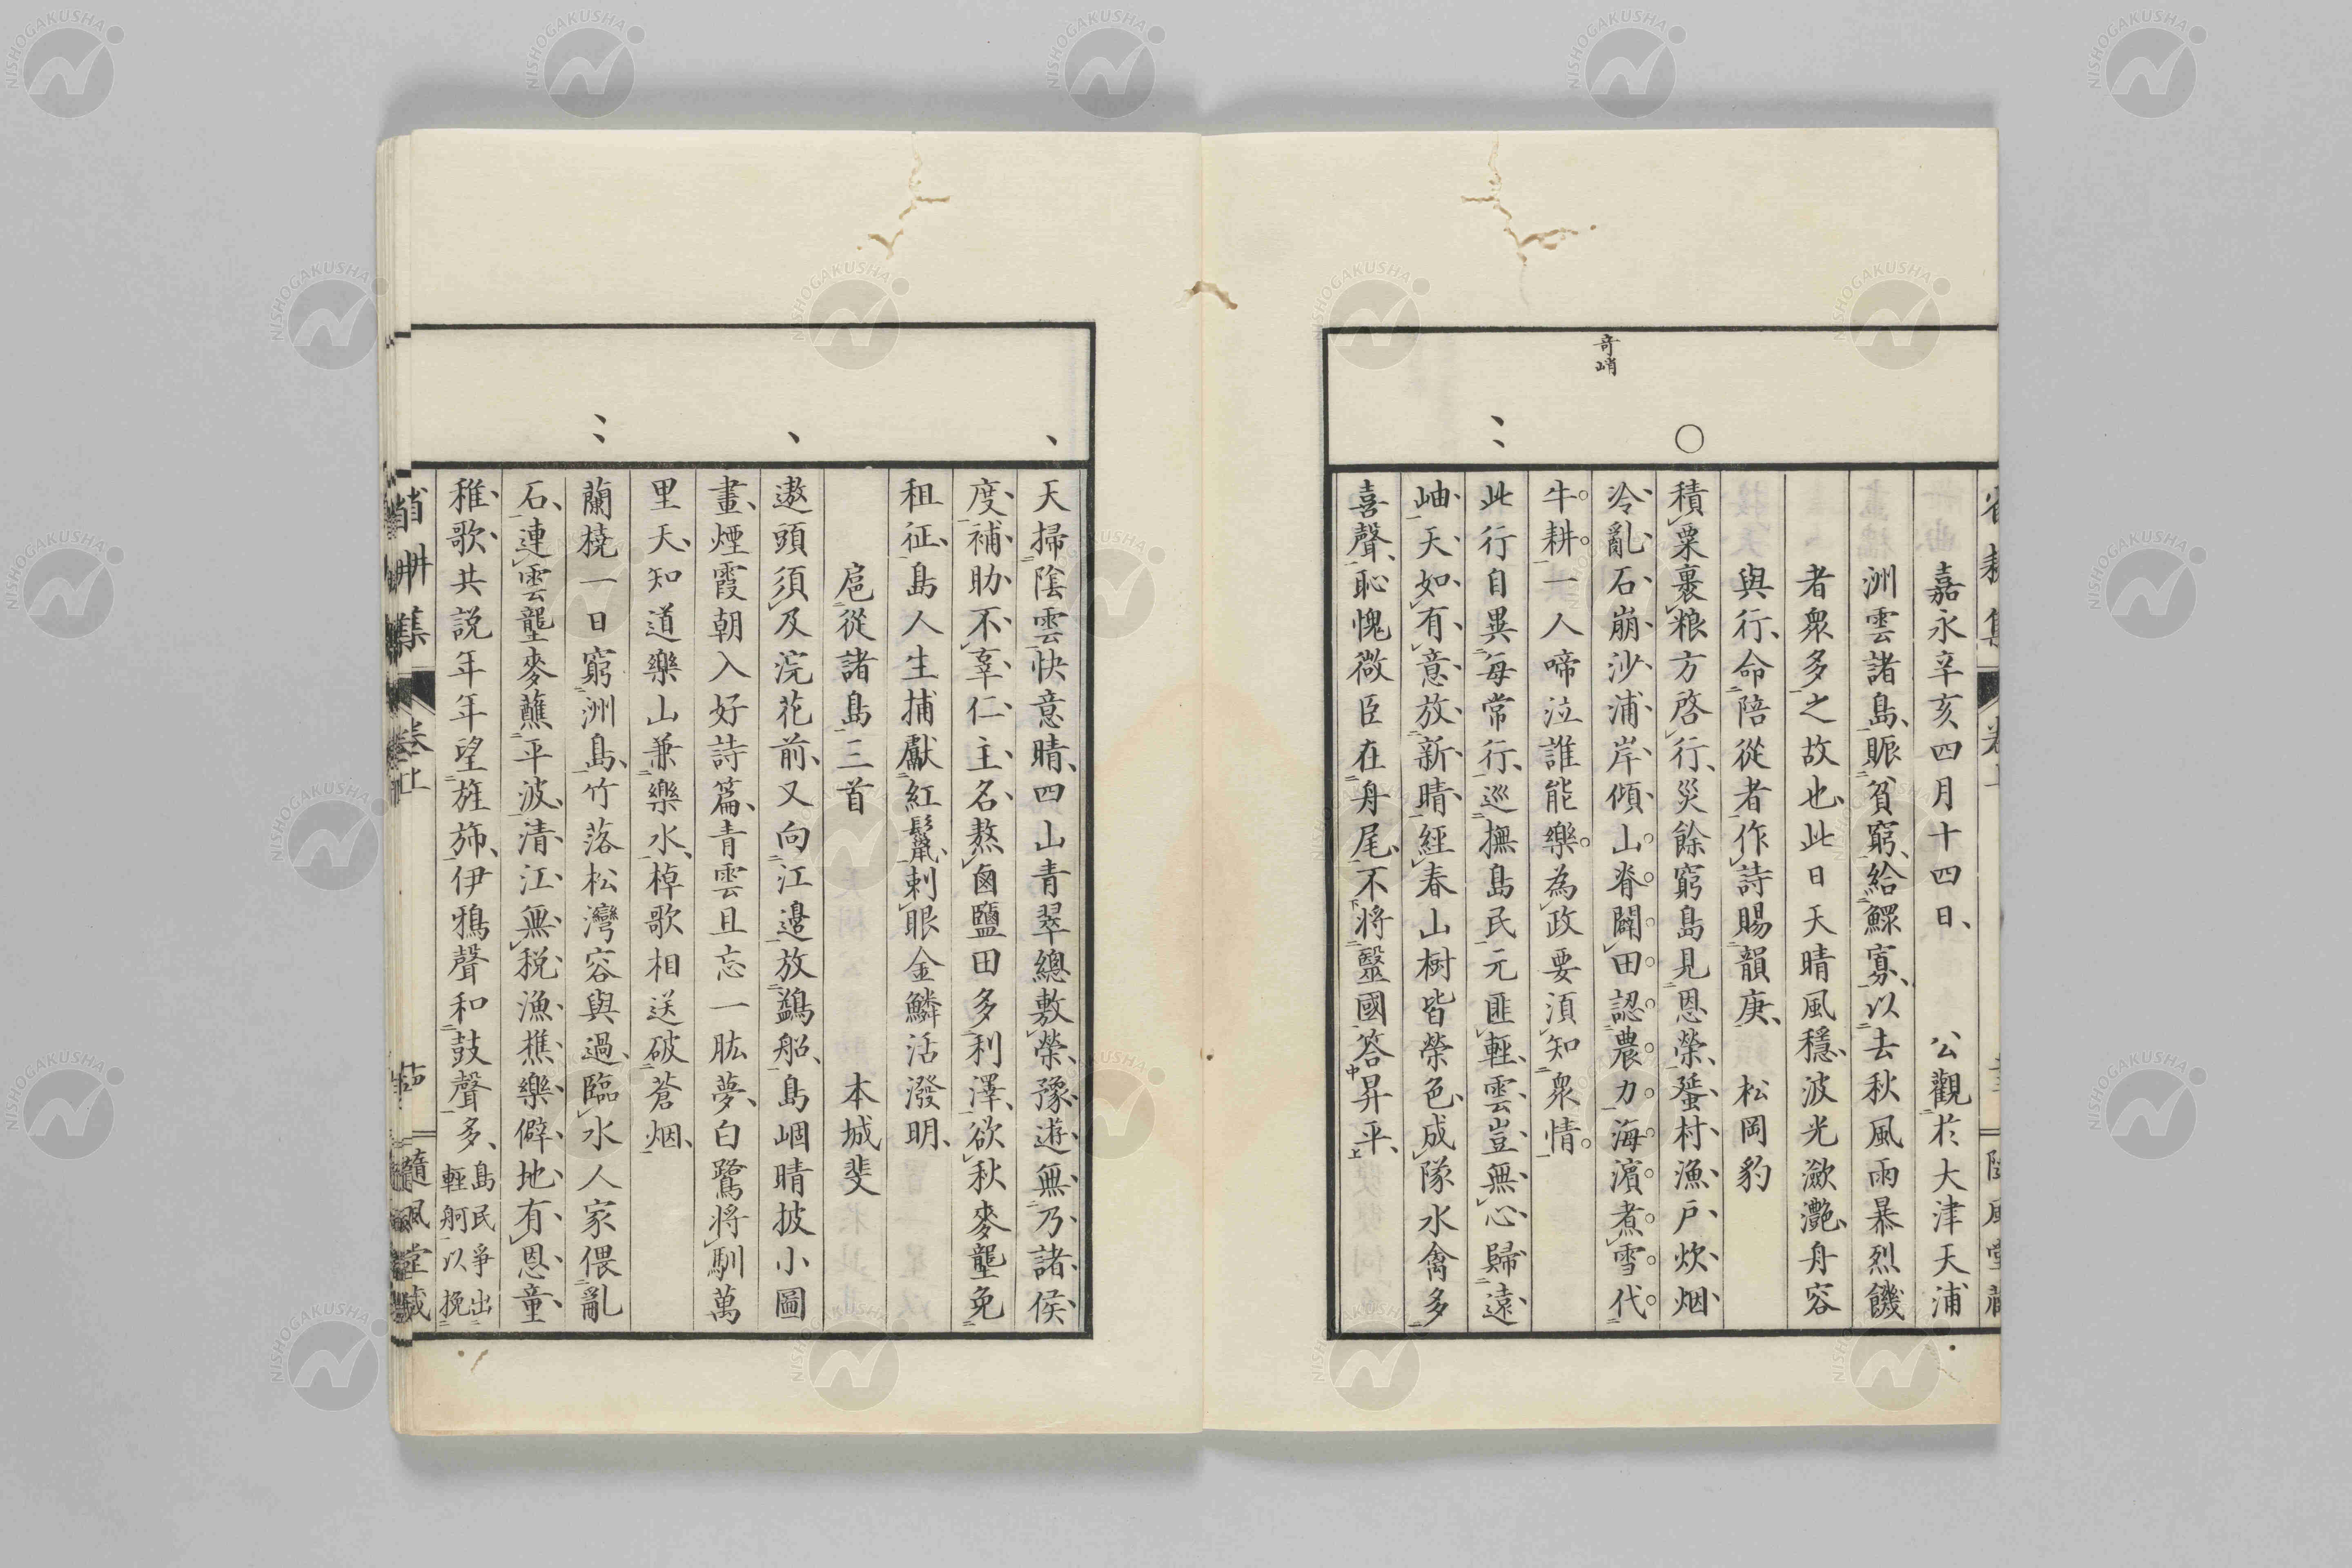 奇峭
嘉永辛亥四月十四日、公觀於大津天浦
洲雲諸島、賑貧窮、給鰥寡、以去秋風雨暴烈饑
者衆多之故也、此日天晴風穩、波光瀲灔、舟容
與行、命陪從者作詩賜韻庚、松岡豹
積粟裹粮方啓行、災餘窮島見恩榮、蜑村漁戶炊烟
冷、亂石崩沙浦岸傾、山脊闢田認農力、海濱煮雪代
牛耕、一人啼泣誰能樂、為政要須知衆情
此行自異每常行、巡撫島民元匪輕、雲豈無心歸遠
岫、天如有意放新晴、經春山樹皆榮色、成隊水禽多
喜聲、恥愧微臣在舟尾、不將毉國答昇平、
天掃陰雲快意晴、四山青翠總敷榮、豫遊無乃諸侯
度、補助不辜仁主名、熬鹵鹽田多利澤、欲秋麥壟免
租征、島人生捕獻紅鬣、刺眼金鱗活潑明、
扈從諸島三首　本城斐
遨頭須及浣花前、又向江邊放鷁船、島崓晴披小圖
畫、煙霞朝入好詩篇、青雲且忘一肱夢、白鷺將馴萬
里天、知道樂山兼樂水、棹歌相送破蒼烟、
蘭橈一日窮洲島、竹落松灣容與過、臨水人家偎亂
石、連雲壟麥蘸平波、清江無稅漁樵樂、僻地有恩童
稚歌、共説年年望旌斾、伊鴉聲和鼓聲多、島民爭出
輕舸以挽
省耕集　卷上　隨風堂藏